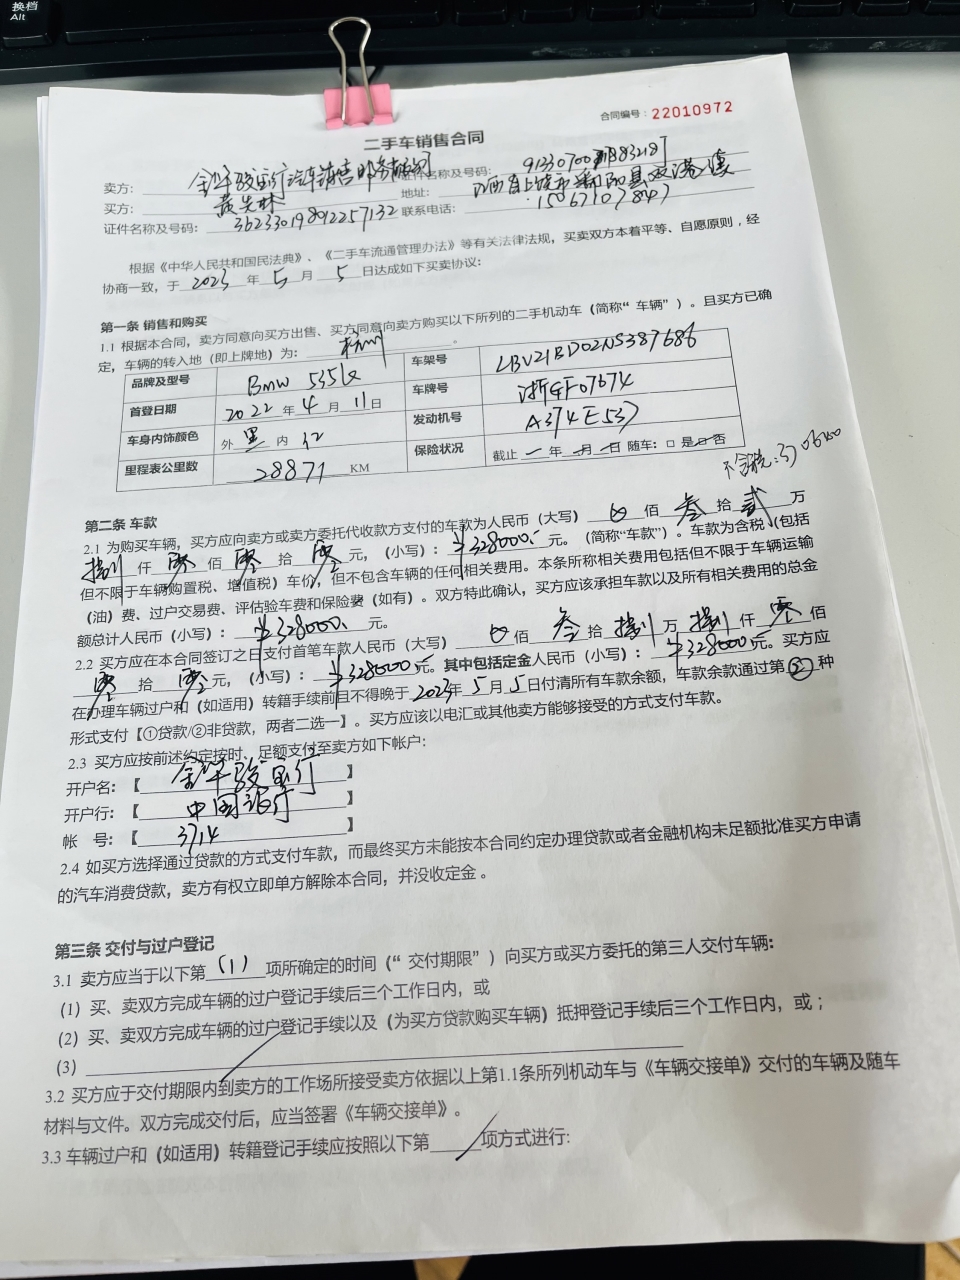 换档
Alt
合同编号：22010972
二手车销售合同
卖方： 金华骏宝行汽车销售服务有限公司 证件名称及号码：
买方： 黄先林 地址：
证件名称及号码： 362330198912257132 联系电话： 15067107847
根据《中华人民共和国民法典》、《二手车流通管理办法》等有关法律法规，买卖双方本着平等、自愿原则，经
协商一致，于 2023 年 5 月 5 日达成如下买卖协议：
第一条 销售和购买
1.1 根据本合同，卖方同意向买方出售、买方同意向卖方购买以下所列的二手机动车（简称“车辆”）。且买方已确
定，车辆的转入地（即上牌地）为： 杭州 。
品牌及型号 BMW 535Le 车架号 LBV21BD02NS387686
首登日期 2022 年 4 月 11 日 车牌号 浙GF07674
车身内饰颜色 外 黑 内 红 发动机号 A374E537
里程表公里数 28871 KM 保险状况 截止 一 年 一 月 一 日 随车：□ 是 □ 否
不含税：
第二条 车款
2.1 为购买车辆，买方应向卖方或卖方委托代收款方支付的车款为人民币（大写） 佰 叁 拾 贰 万
捌 仟 零 佰 零 拾 零 元，（小写）： ¥328000. 元。（简称“车款”）。车款为含税（包括
但不限于车辆购置税、增值税）车价，但不包含车辆的任何相关费用。本条所称相关费用包括但不限于车辆运输
（油）费、过户交易费、评估验车费和保险费（如有）。双方特此确认，买方应该承担车款以及所有相关费用的总金
额总计人民币（小写）： ¥328000. 元。
2.2 买方应在本合同签订之日支付首笔车款人民币（大写） 佰 叁 拾 捌 万 捌 仟 零 佰
零 拾 零 元，（小写）： ¥328000 元。其中包括定金人民币（小写）： ¥328000 元。买方应
在办理车辆过户和（如适用）转籍手续前且不得晚于 2023 年 5 月 5 日付清所有车款余额，车款余款通过第 ② 种
形式支付【①贷款/②非贷款，两者二选一】。买方应该以电汇或其他卖方能够接受的方式支付车款。
2.3 买方应按前述约定按时、足额支付至卖方如下帐户：
开户名：【 金华骏宝行 】
开户行：【 中国银行 】
帐 号：【 3714 】
2.4 如买方选择通过贷款的方式支付车款，而最终买方未能按本合同约定办理贷款或者金融机构未足额批准买方申请
的汽车消费贷款，卖方有权立即单方解除本合同，并没收定金 。
第三条 交付与过户登记
3.1 卖方应当于以下第 (1) 项所确定的时间（“交付期限”）向买方或买方委托的第三人交付车辆：
（1）买、卖双方完成车辆的过户登记手续后三个工作日内，或
（2）买、卖双方完成车辆的过户登记手续以及（为买方贷款购买车辆）抵押登记手续后三个工作日内，或；
（3）
3.2 买方应于交付期限内到卖方的工作场所接受卖方依据以上第1.1条所列机动车与《车辆交接单》交付的车辆及随车
材料与文件。双方完成交付后，应当签署《车辆交接单》。
3.3 车辆过户和（如适用）转籍登记手续应按照以下第 项方式进行：